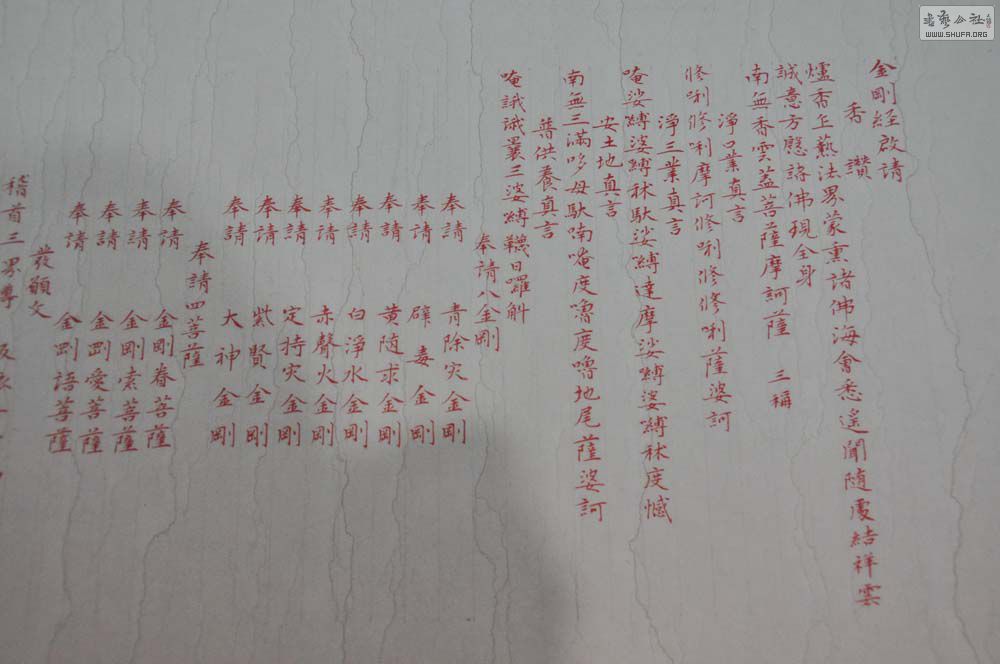 金剛經啟請
香讚
爐香乍爇法界蒙熏諸佛海會悉遙聞隨處結祥雲
誠意方慇諸佛現全身
南無香雲蓋菩薩摩訶薩 三稱
淨口業真言
修唎修唎摩訶修唎修修唎薩婆訶
淨三業真言
唵娑縛婆縛秫馱娑縛達摩娑縛婆縛秫度憾
安土地真言
南無三滿哆母馱喃唵度嚕度嚕地尾薩婆訶
普供養真言
唵誐誐曩三婆縛韈日囉斛
奉請八金剛
奉請 青除灾金剛
奉請 辟毒金剛
奉請 黄随求金剛
奉請 白淨水金剛
奉請 赤聲火金剛
奉請 定持灾金剛
奉請 紫賢金剛
奉請 大神金剛
奉請四菩薩
奉請 金剛眷菩薩
奉請 金剛索菩薩
奉請 金剛愛菩薩
奉請 金剛語菩薩
發願文
稽首三界尊
WWW.SHUFA.ORG